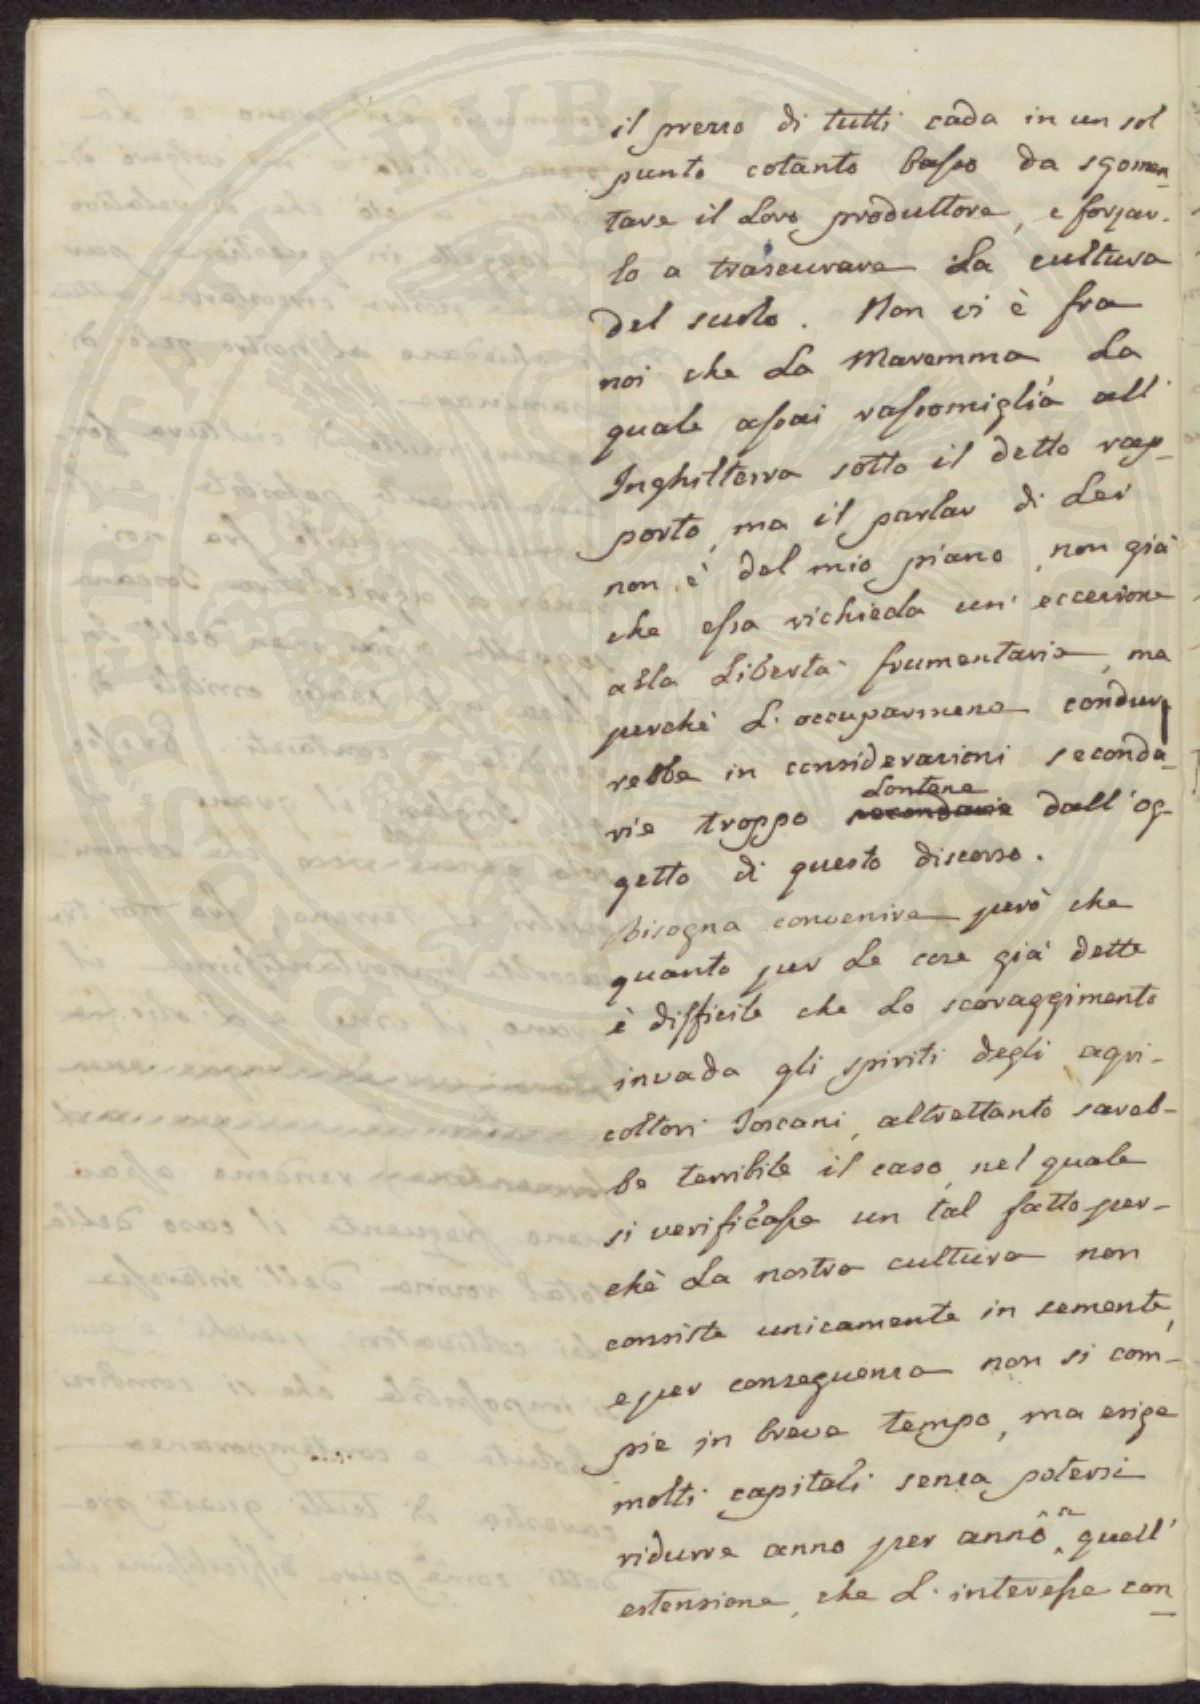 il prezzo di tutti cada in un sol
punto cotanto basso da sgomen-
tare il loro produttore, e forzar-
lo a trascurare la cultura
del suolo. Non vi è fra
noi che la Maremma la
quale assai rassomiglia all'
Inghilterra sotto il detto rap-
porto, ma il parlar di lei
non è del mio piano, non già
che essa richieda un' eccezione
alla libertà frumentaria, ma
perchè l'occuparmene condur
rebbe in considerazioni seconda-
lontane
rie troppo secondarie dall'og-
getto di questo discorso.
Bisogna convenire però che
quanto per le cose già dette
è difficile che lo scoraggimento
invada gli spiriti degli agri-
coltori Toscani, altrettanto sareb-
be terribile il caso, nel quale
si verificasse un tal fatto per-
chè la nostra cultura non
consiste unicamente in semente,
e per conseguenza non si com-
pie in breve tempo, ma esige
molti capitali senza potersi
ridurre anno per anno quell'
estensione, che l'interesse con